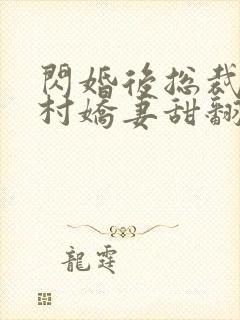 閃婚後總裁
村嬌妻甜翻
龍霆